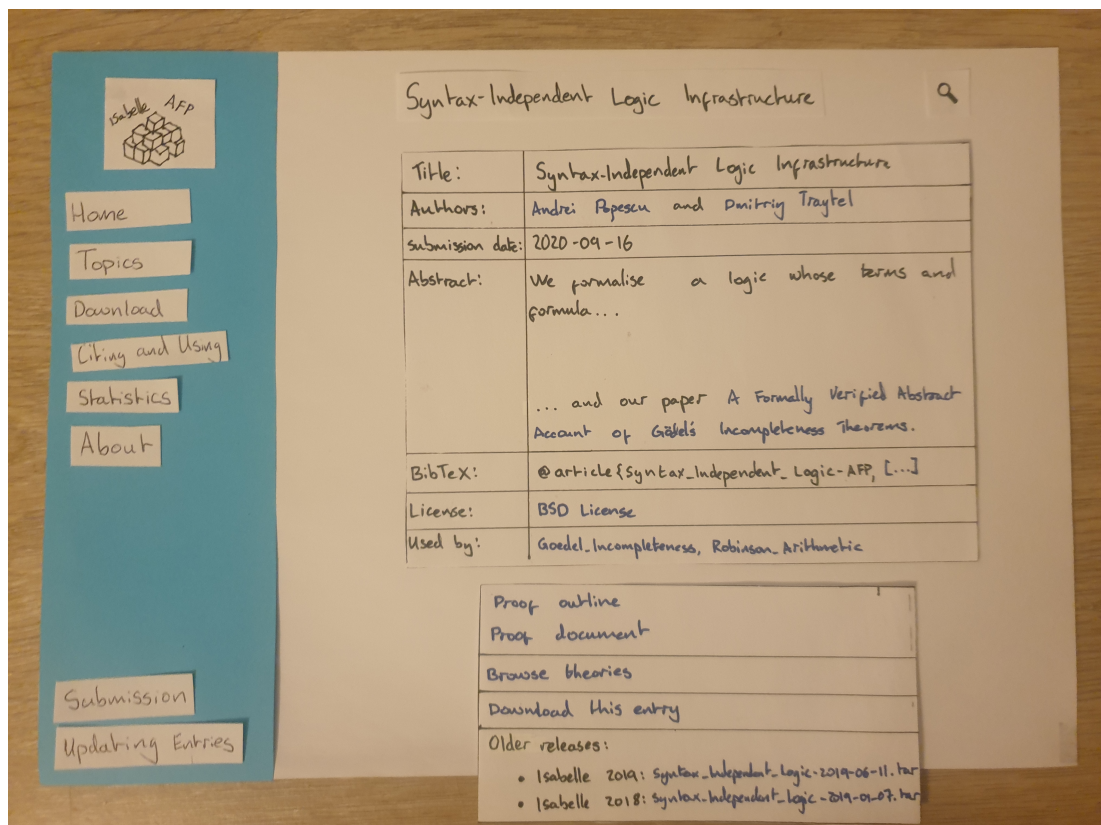 Isabelle AFP
Home
Topics
Download
Citing and Using
Statistics
About
Submission
Updating Entries
Syntax-Independent Logic Infrastructure
Title: Syntax-Independent Logic Infrastructure
Authors: Andrei Popescu and Dmitriy Traytel
submission date: 2020-09-16
Abstract: We formalise a logic whose terms and
formula...
... and our paper A Formally Verified Abstract
Account of Gödel's Incompleteness Theorems.
BibTeX: @article{Syntax_Independent_Logic-AFP, [...]
License: BSD License
Used by: Goedel_Incompleteness, Robinson_Arithmetic
Proof outline
Proof document
Browse theories
Download this entry
Older releases:
• Isabelle 2019: Syntax_Independent_Logic-2019-06-11.tar
• Isabelle 2018: Syntax_Independent_Logic-2019-01-07.tar